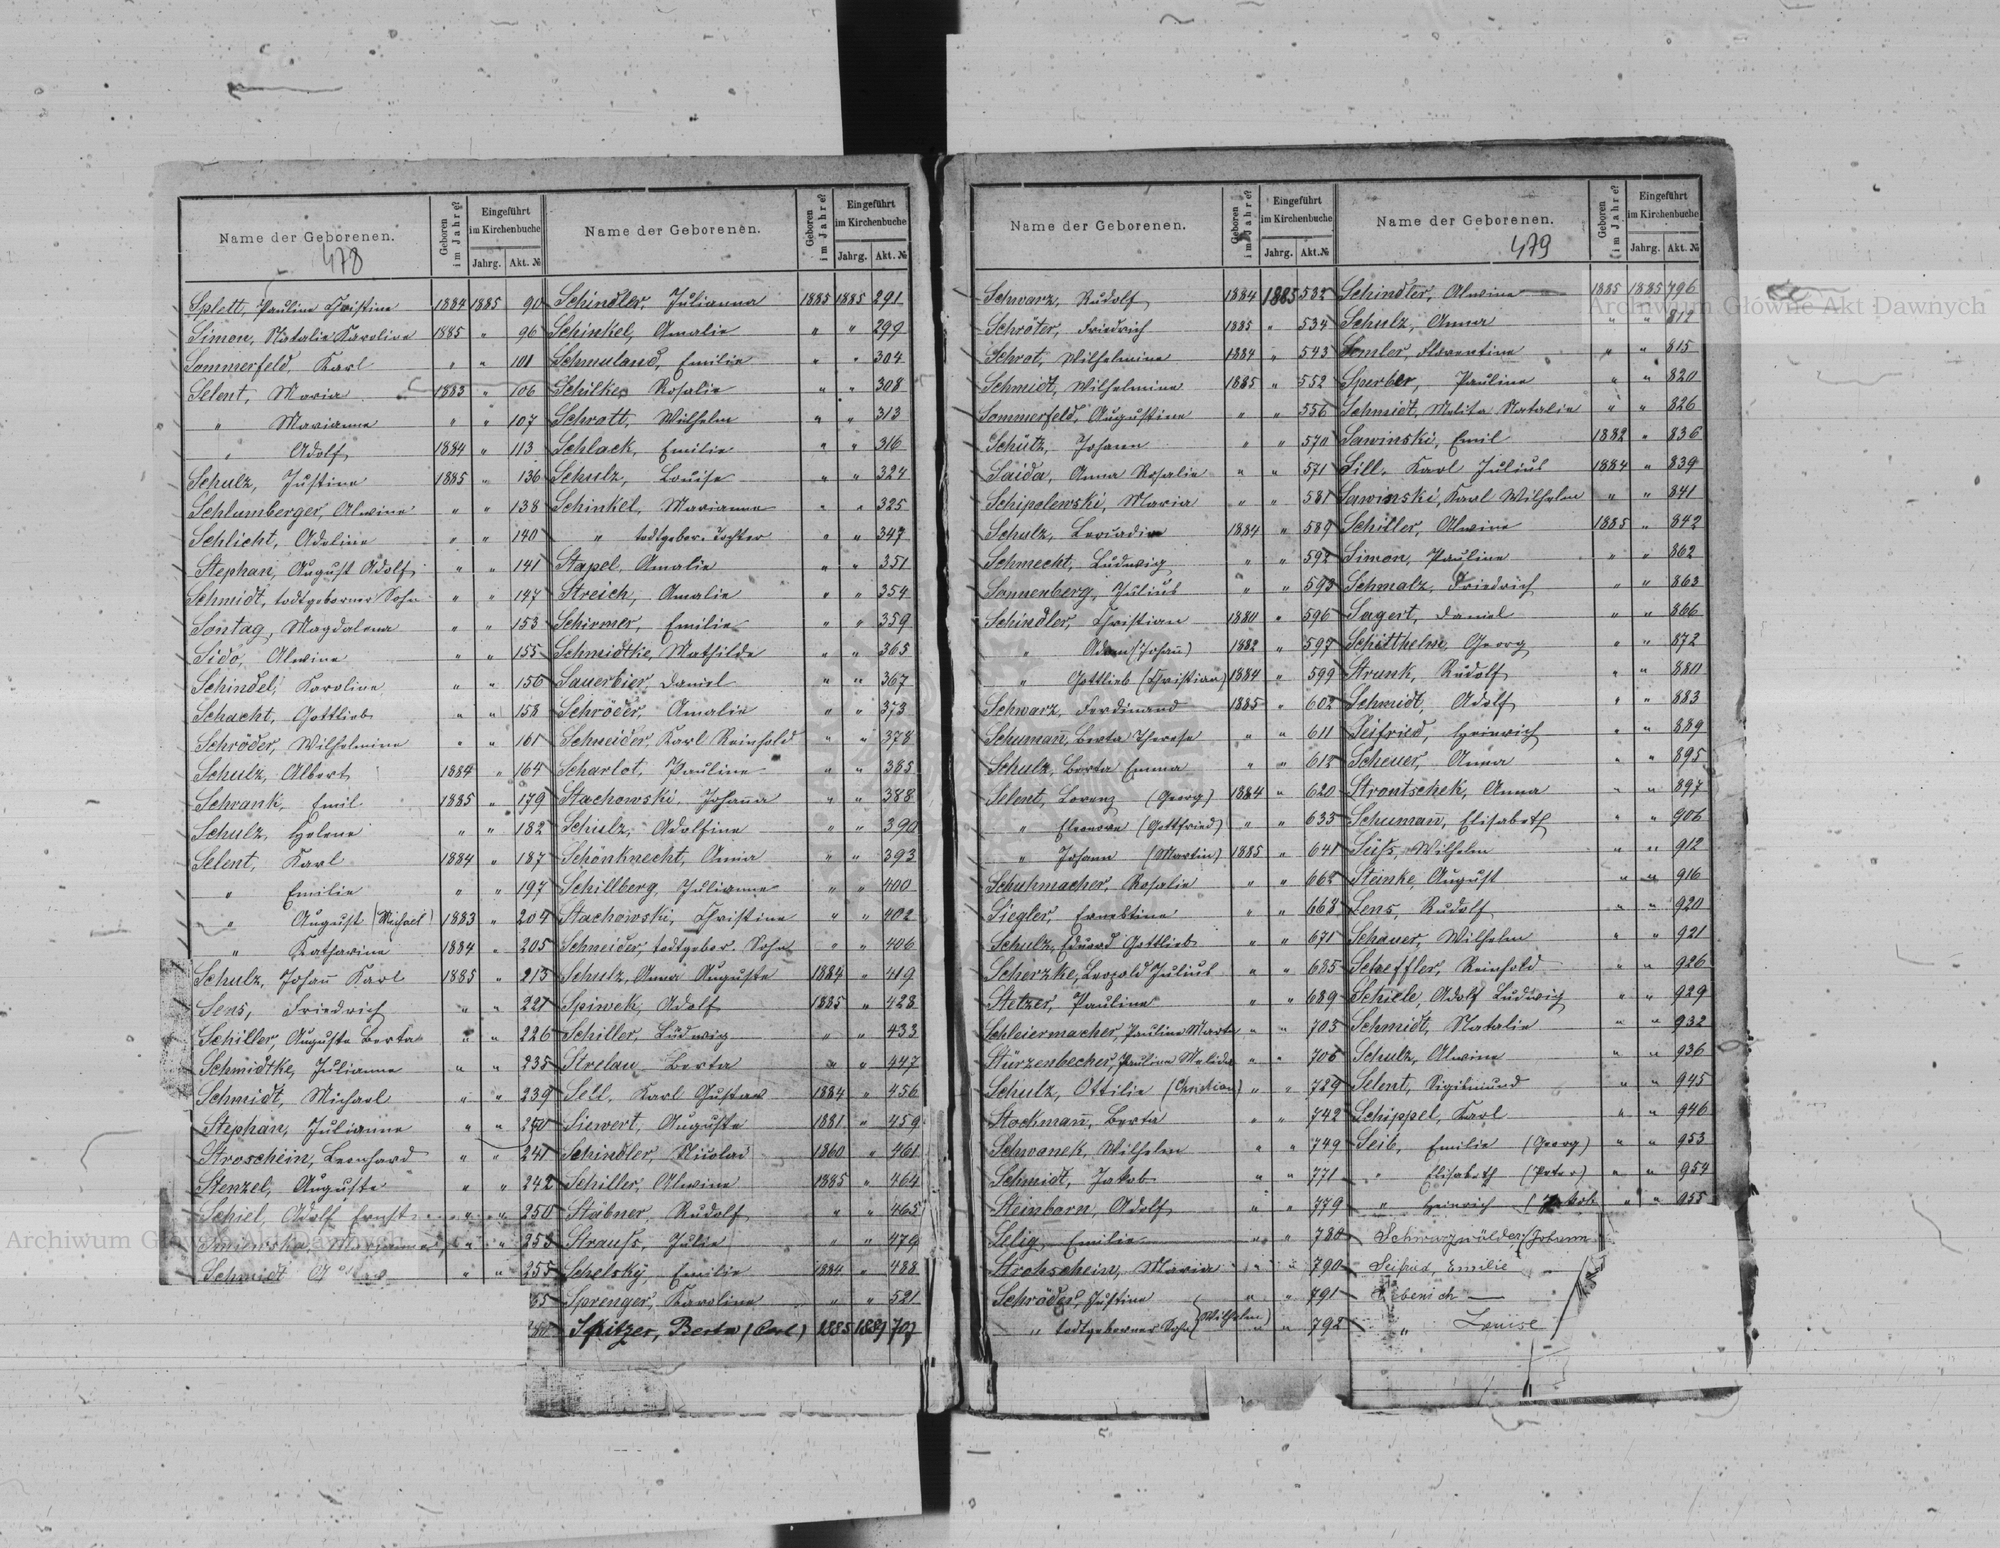 Name der Geborenen.
478
Geboren im Jahre?
Eingeführt im Kirchenbuche
Jahrg. Akt. №
Splett, Pauline Christine 1884 1885 90
Simon, Natalie Karoline 1885 " 96
Sommerfeld, Karl " " 101
Selent, Maria 1883 " 106
" Marianna " " 107
" Adolf 1884 " 113
Schulz, Justine 1885 " 136
Schlumberger, Alwine " " 138
Schlicht, Adoline " " 140
Stephan, August Adolf " " 141
Schmidt, todtgeborner Sohn " " 147
Sontag, Magdalena " " 153
Sido, Alwine " " 155
Schindel, Karoline " " 156
Schacht, Gottlieb " " 158
Schröder, Wilhelmine " " 161
Schulz, Albert 1884 " 164
Schrank, Emil 1885 " 179
Schulz, Helene " " 182
Selent, Karl 1884 " 187
" Emilie " " 197
" August (Michael) 1883 " 204
" Katharine 1884 " 205
Schulz, Johañ Karl 1885 " 213
Sens, Friedrich " " 221
Schiller, Auguste Berta " " 226
Schmidtke, Julianne " " 235
Schmidt, Michael " " 239
Stephan, Julianne " " 240
Stroschein, Leonhard " " 241
Stenzel, Auguste " " 242
Schiel, Adolf Ernst " " 250
" " 253
Schmidt " " 255
65
Name der Geborenen.
Geboren im Jahre?
Eingeführt im Kirchenbuche
Jahrg. Akt. №
Schindler, Julianna 1885 1885 291
Schinkel, Amalie " " 299
Schmuland, Emilie " " 304
Schilke, Rosalie " " 308
Schrott, Wilhelm " " 313
Schlack, Emilie " " 316
Schulz, Louise " " 324
Schinkel, Marianne " " 325
" todtgebor. Tochter " " 347
Stapel, Amalie " " 351
Streich, Amalie " " 354
Schirmer, Emilie " " 359
Schmidtke, Mathilde " " 365
Sauerbier, Daniel " " 367
Schröder, Amalie " " 373
Schneider, Karl Reinhold " " 378
Scharlot, Pauline " " 385
Stachowski, Johaña " " 388
Schulz, Adolfine " " 390
Schönknecht, Anna " " 393
Schillberg, Julianne " " 400
Stachowski, Christine " " 402
Schneider, todtgebor. Sohn " " 406
Schulz, Anna Auguste 1884 " 419
Spiwek, Adolf 1885 " 428
Schiller, Ludwig " " 433
Strelau, Berta " " 447
Sell, Karl Gustav 1884 " 456
Siewert, Auguste 1881 " 459
Schindler, Nicolai 1860 " 461
Schiller, Alwine 1885 " 464
Stäbner, Rudolf " " 465
Strauß, Julie " " 479
Schelsky, Emilie 1884 " 488
Sprenger, Karoline " " 521
Spitzer, Berta (Carl) 1885 1885 707
Name der Geborenen.
Geboren im Jahre?
Eingeführt im Kirchenbuche
Jahrg. Akt. №
Schwarz, Rudolf 1884 1885 532
Schröter, Friedrich 1885 " 534
Schrot, Wilhelmine 1884 " 543
Schmidt, Wilhelmine 1885 " 552
Sommerfeld, Augustine " " 556
Schütz, Johann " " 570
Saida, Anna Rosalie " " 571
Schipolewski, Maria " " 581
Schulz, Leocadie 1884 " 589
Schmecht, Ludwig " " 592
Sonnenberg, Julius " " 593
Schindler, Christian 1880 " 596
" Adam (Johañ) 1882 " 597
" Gottlieb (Christian) 1884 " 599
Schwarz, Ferdinand 1885 " 602
Schumañ, Berta Therese " " 611
Schulz, Berta Emma " " 612
Selent, Lorenz (Georg) 1884 " 620
" Eleonore (Gottfried) " " 635
" Johann (Martin) 1885 " 641
Schuhmacher, Rosalie " " 662
Siegler, Ernestine " " 663
Schulz, Eduard Gottlieb " " 671
Scherzke, Leopold Julius " " 685
Stelzer, Pauline " " 689
Schleiermacher, Pauline Marta " " 703
Stürzenbecher, Pauline Melida " " 706
Schulz, Ottilie (Christian) " " 729
Stockmañ, Berta " " 742
Schwanek, Wilhelm " " 749
Schmidt, Jakob " " 771
Steinborn, Adolf " " 779
Selig, Emilie " " 780
Strohschein, Maria " " 790
Schröder, Justine " " 791
" todtgeborner Sohn (Wilhelm) " " 792
Name der Geborenen.
479
Geboren im Jahre?
Eingeführt im Kirchenbuche
Jahrg. Akt. №
Schindler, Alwine 1885 1885 796
Schulz, Anna " " 811
Somler, Florentine " " 815
Sperber, Pauline " " 820
Schmidt, Melita Natalie " " 826
Sawinski, Emil 1882 " 836
Sill, Karl Julius 1884 " 839
Sawinski, Karl Wilhelm " " 841
Schiller, Alwine 1885 " 842
Simon, Pauline " " 862
Schmalz, Friedrich " " 863
Sagert, Daniel " " 866
Schitthelm, Georg " " 872
Strunk, Rudolf " " 880
Schmidt, Adolf " " 883
Seifried, Heinrich " " 889
Scheuer, Anna " " 895
Strontschek, Anna " " 897
Schumañ, Elisabeth " " 906
Seiß, Wilhelm " " 912
Steinke, August " " 916
Sens, Rudolf " " 920
Schauer, Wilhelm " " 921
Scheffler, Reinhold " " 926
Schiele, Adolf Ludwig " " 929
Schmidt, Natalie " " 932
Schulz, Alwine " " 936
Selent, Sigismund " " 945
Schippel, Karl " " 946
Seib, Emilie (Georg) " " 953
" Elisabeth (Peter) " " 954
" Heinrich (Jakob " " 955
Schwarzwälder, (Johann
Seifried, Emilie
" Louise
Archiwum Główne Akt Dawnych
Archiwum Główne Akt Dawnych